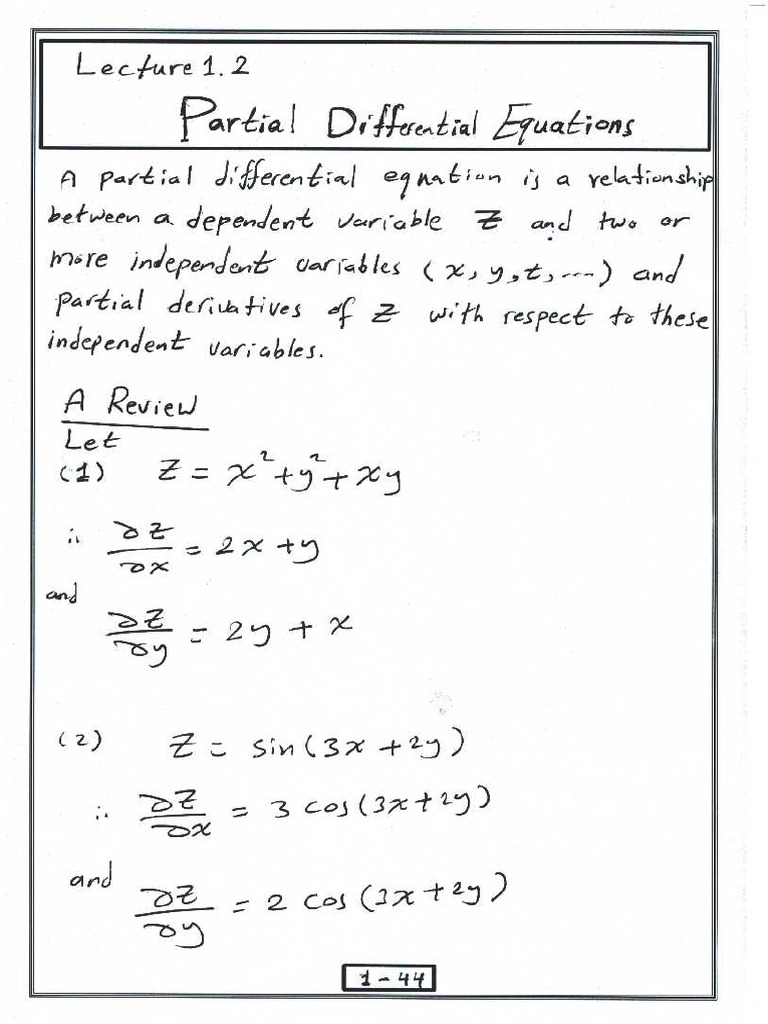 Lecture 1.2
Partial Differential Equations
A partial differential equation is a relationship
between a dependent variable Z and two or
more independent variables (x, y, t, ----) and
partial derivatives of Z with respect to these
independent variables.
A Review
Let
(1) Z = x² + y² + xy
∴ ∂Z/∂x = 2x + y
and
∂Z/∂y = 2y + x
(2) Z = sin(3x + 2y)
∴ ∂Z/∂x = 3 cos(3x + 2y)
and
∂Z/∂y = 2 cos(3x + 2y)
1 - 44